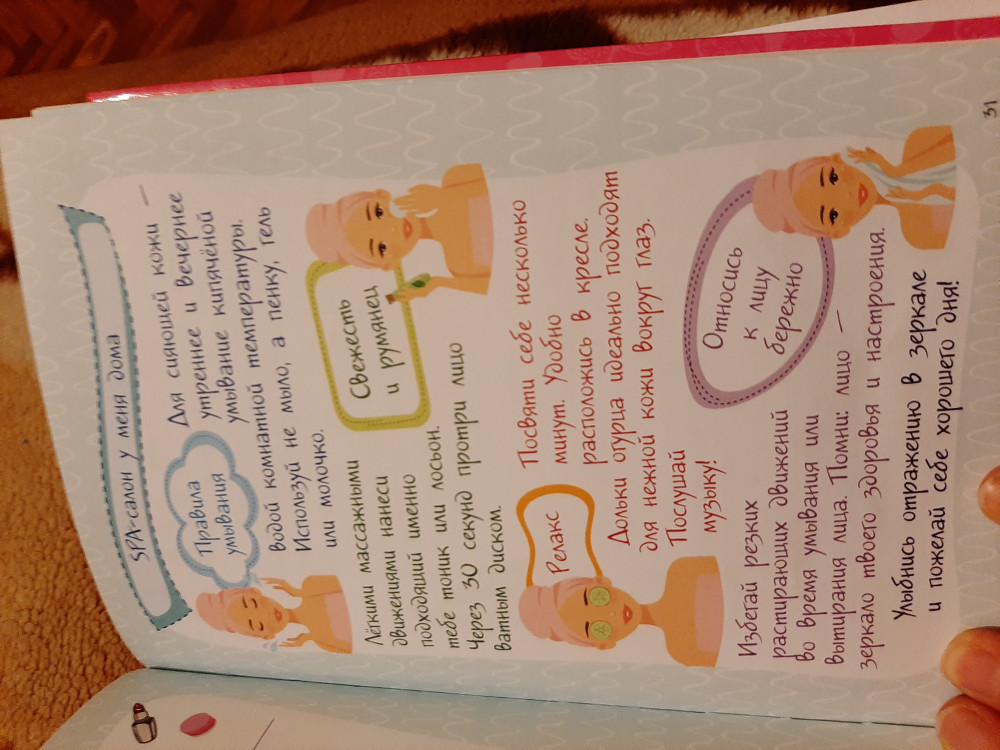 SPA-салон у меня дома
Правила
умывания
Для сияющей кожи —
утреннее и вечернее
умывание кипячёной
водой комнатной температуры.
Используй не мыло, а пенку, гель
или молочко.
Лёгкими массажными
движениями нанеси
подходящий именно
тебе тоник или лосьон.
Через 30 секунд протри лицо
ватным диском.
Свежесть
и румянец
Релакс
Посвяти себе несколько
минут. Удобно
расположись в кресле.
Дольки огурца идеально подходят
для нежной кожи вокруг глаз.
Послушай
музыку!
Избегай резких
растирающих движений
во время умывания или
вытирания лица. Помни: лицо —
зеркало твоего здоровья и настроения.
Относись
к лицу
бережно
Улыбнись отражению в зеркале
и пожелай себе хорошего дня!
31